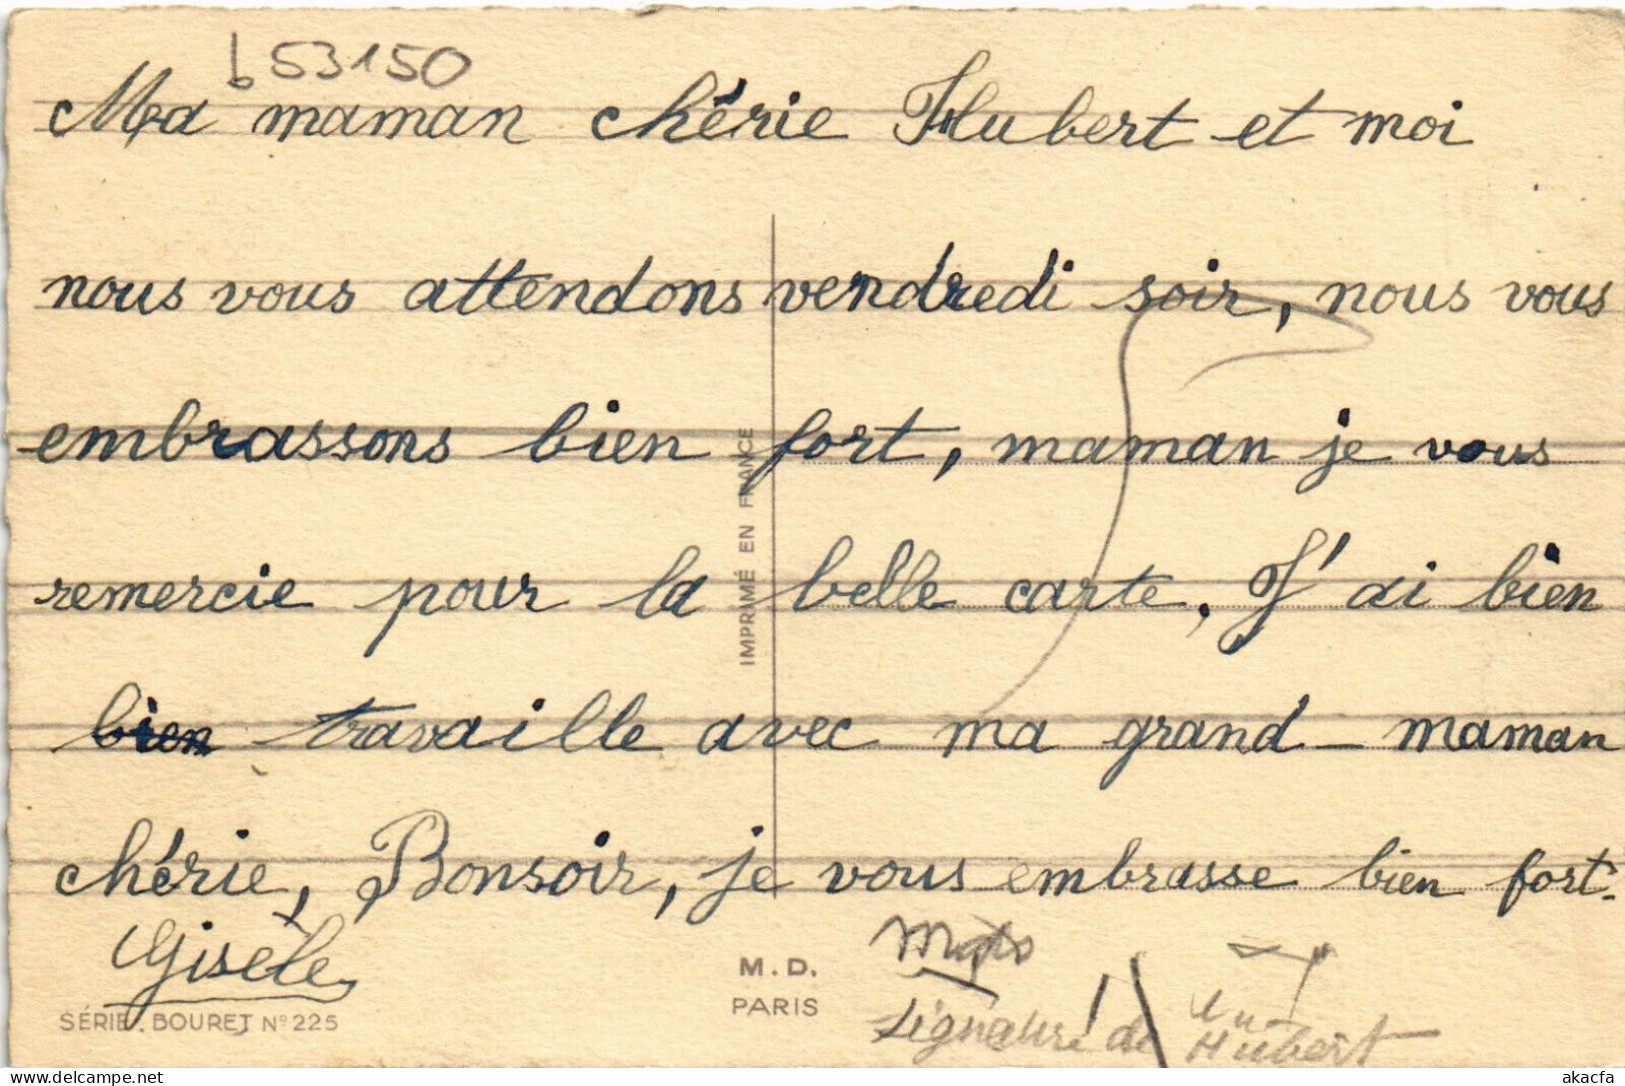 b53150
Ma maman chérie Hubert et moi
nous vous attendons vendredi soir, nous vous
embrassons bien fort, maman je vous
remercie pour la belle carte. J'ai bien
bien travaillé avec ma grand-maman
chérie, Bonsoir, je vous embrasse bien fort.
Gisèle
IMPRIMÉ EN FRANCE
M.D.
PARIS
SÉRIE. BOURET Nº 225
signature de Hubert
akacfa